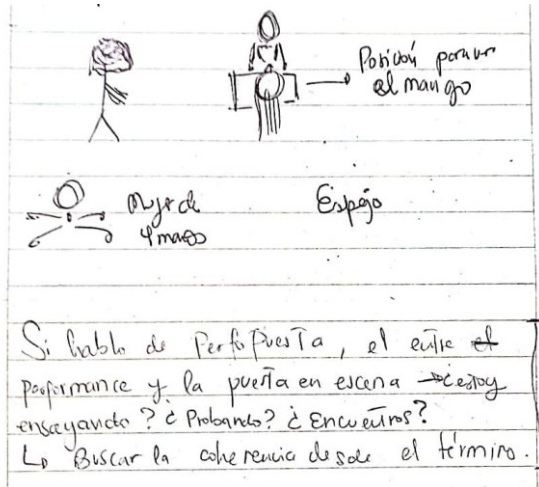 Posición para ver
el mango
Mujer de
4 manos
Espejo
Si hablo de PerfoPuesTa, el entre el
performance y la puesta en escena → ¿estoy
ensayando? ¿Probando? ¿Encuentros?
↳ Buscar la coherencia desde el término.